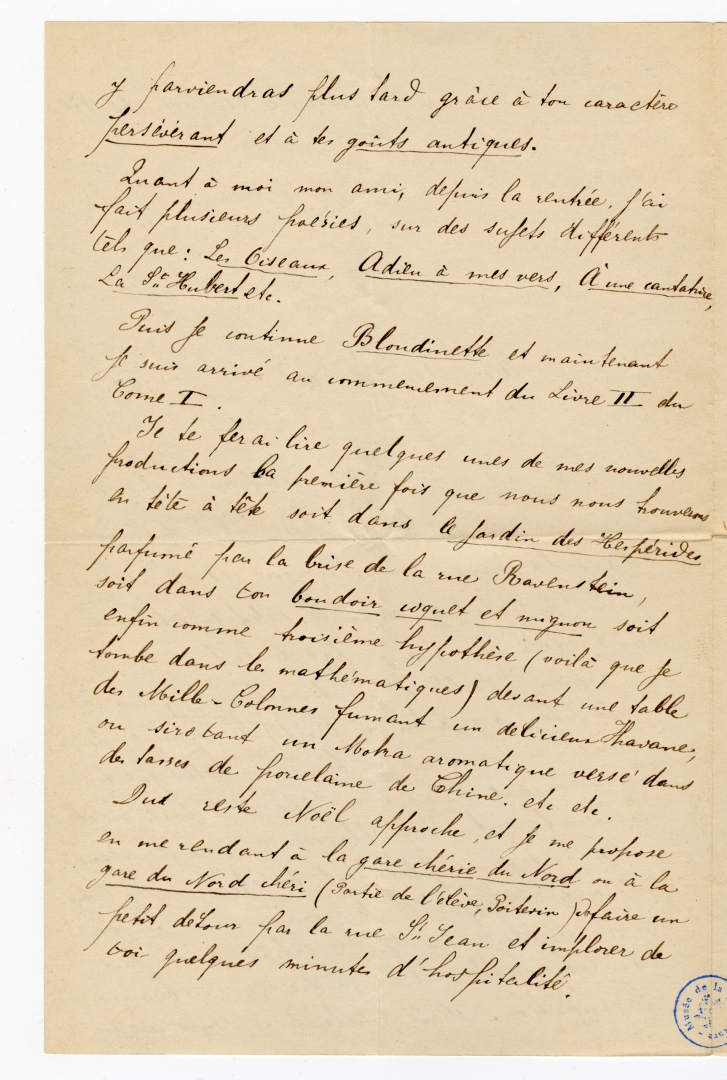 y parviendras plus tard grâce à ton caractère
persévérant et à tes goûts antiques.
Quant à moi mon ami, depuis la rentrée, j'ai
fait plusieurs poésies, sur des sujets différents
tels que : Les Oiseaux, Adieu à mes vers, À une cantatrice,
La St Hubert etc.
Puis je continue Blondinette et maintenant
je suis arrivé au commencement du Livre II du
Tome I.
Je te ferai lire quelques unes de mes nouvelles
productions la première fois que nous nous trouverons
en tête à tête soit dans le jardin des Hespérides
parfumé par la brise de la rue Ravenstein,
soit dans ton boudoir coquet et mignon soit
enfin comme troisième hypothèse (voilà que je
tombe dans les mathématiques) devant une table
des Mille-Colonnes fumant un délicieux Havane,
ou sirotant un Moka aromatique versé dans
des tasses de porcelaine de Chine. etc etc.
Du reste Noël approche, et je me propose
en me rendant à la gare chérie du Nord ou à la
gare du Nord chéri (Partie de l'élève, Poitevin) de faire un
petit détour par la rue St Jean et implorer de
toi quelques minutes d'hospitalité.
Musée de la